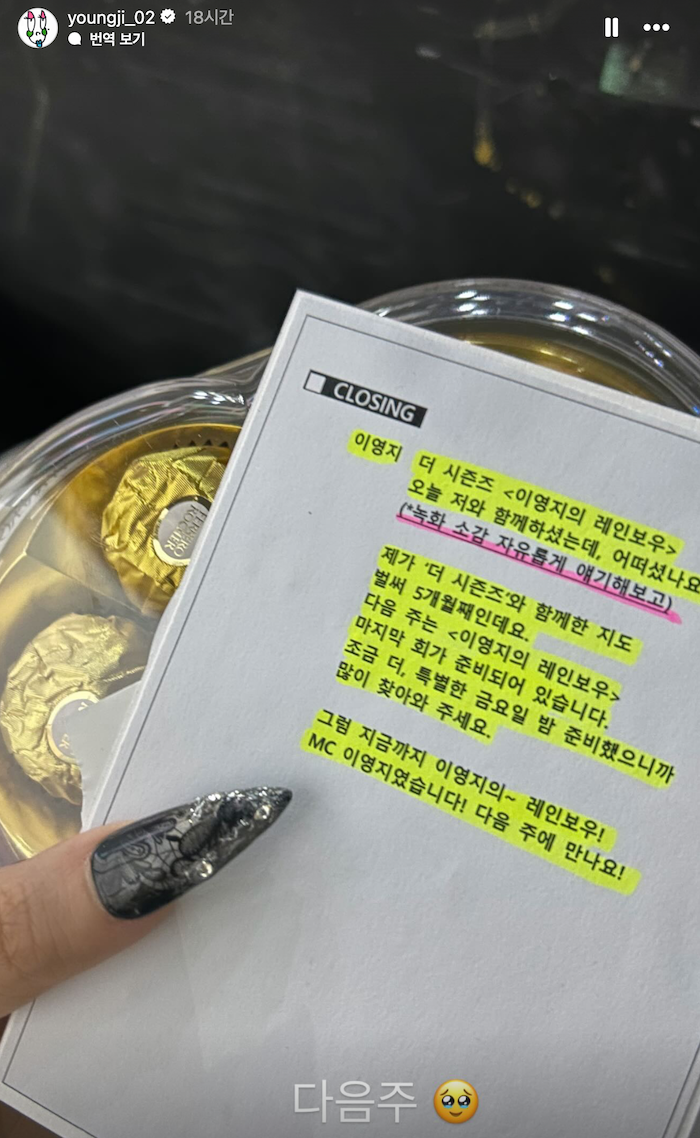 youngji_02 18시간
번역 보기
CLOSING
이영지 더 시즌즈 <이영지의 레인보우>
오늘 저와 함께하셨는데, 어떠셨나요
(*녹화 소감 자유롭게 얘기해보고)
제가 '더 시즌즈'와 함께한 지도
벌써 5개월째인데요.
다음 주는 <이영지의 레인보우>
마지막 회가 준비되어 있습니다.
조금 더, 특별한 금요일 밤 준비했으니까
많이 찾아와 주세요.
그럼 지금까지 이영지의~ 레인보우!
MC 이영지였습니다! 다음 주에 만나요!
FERRERO
ROCHER
다음주 🥹